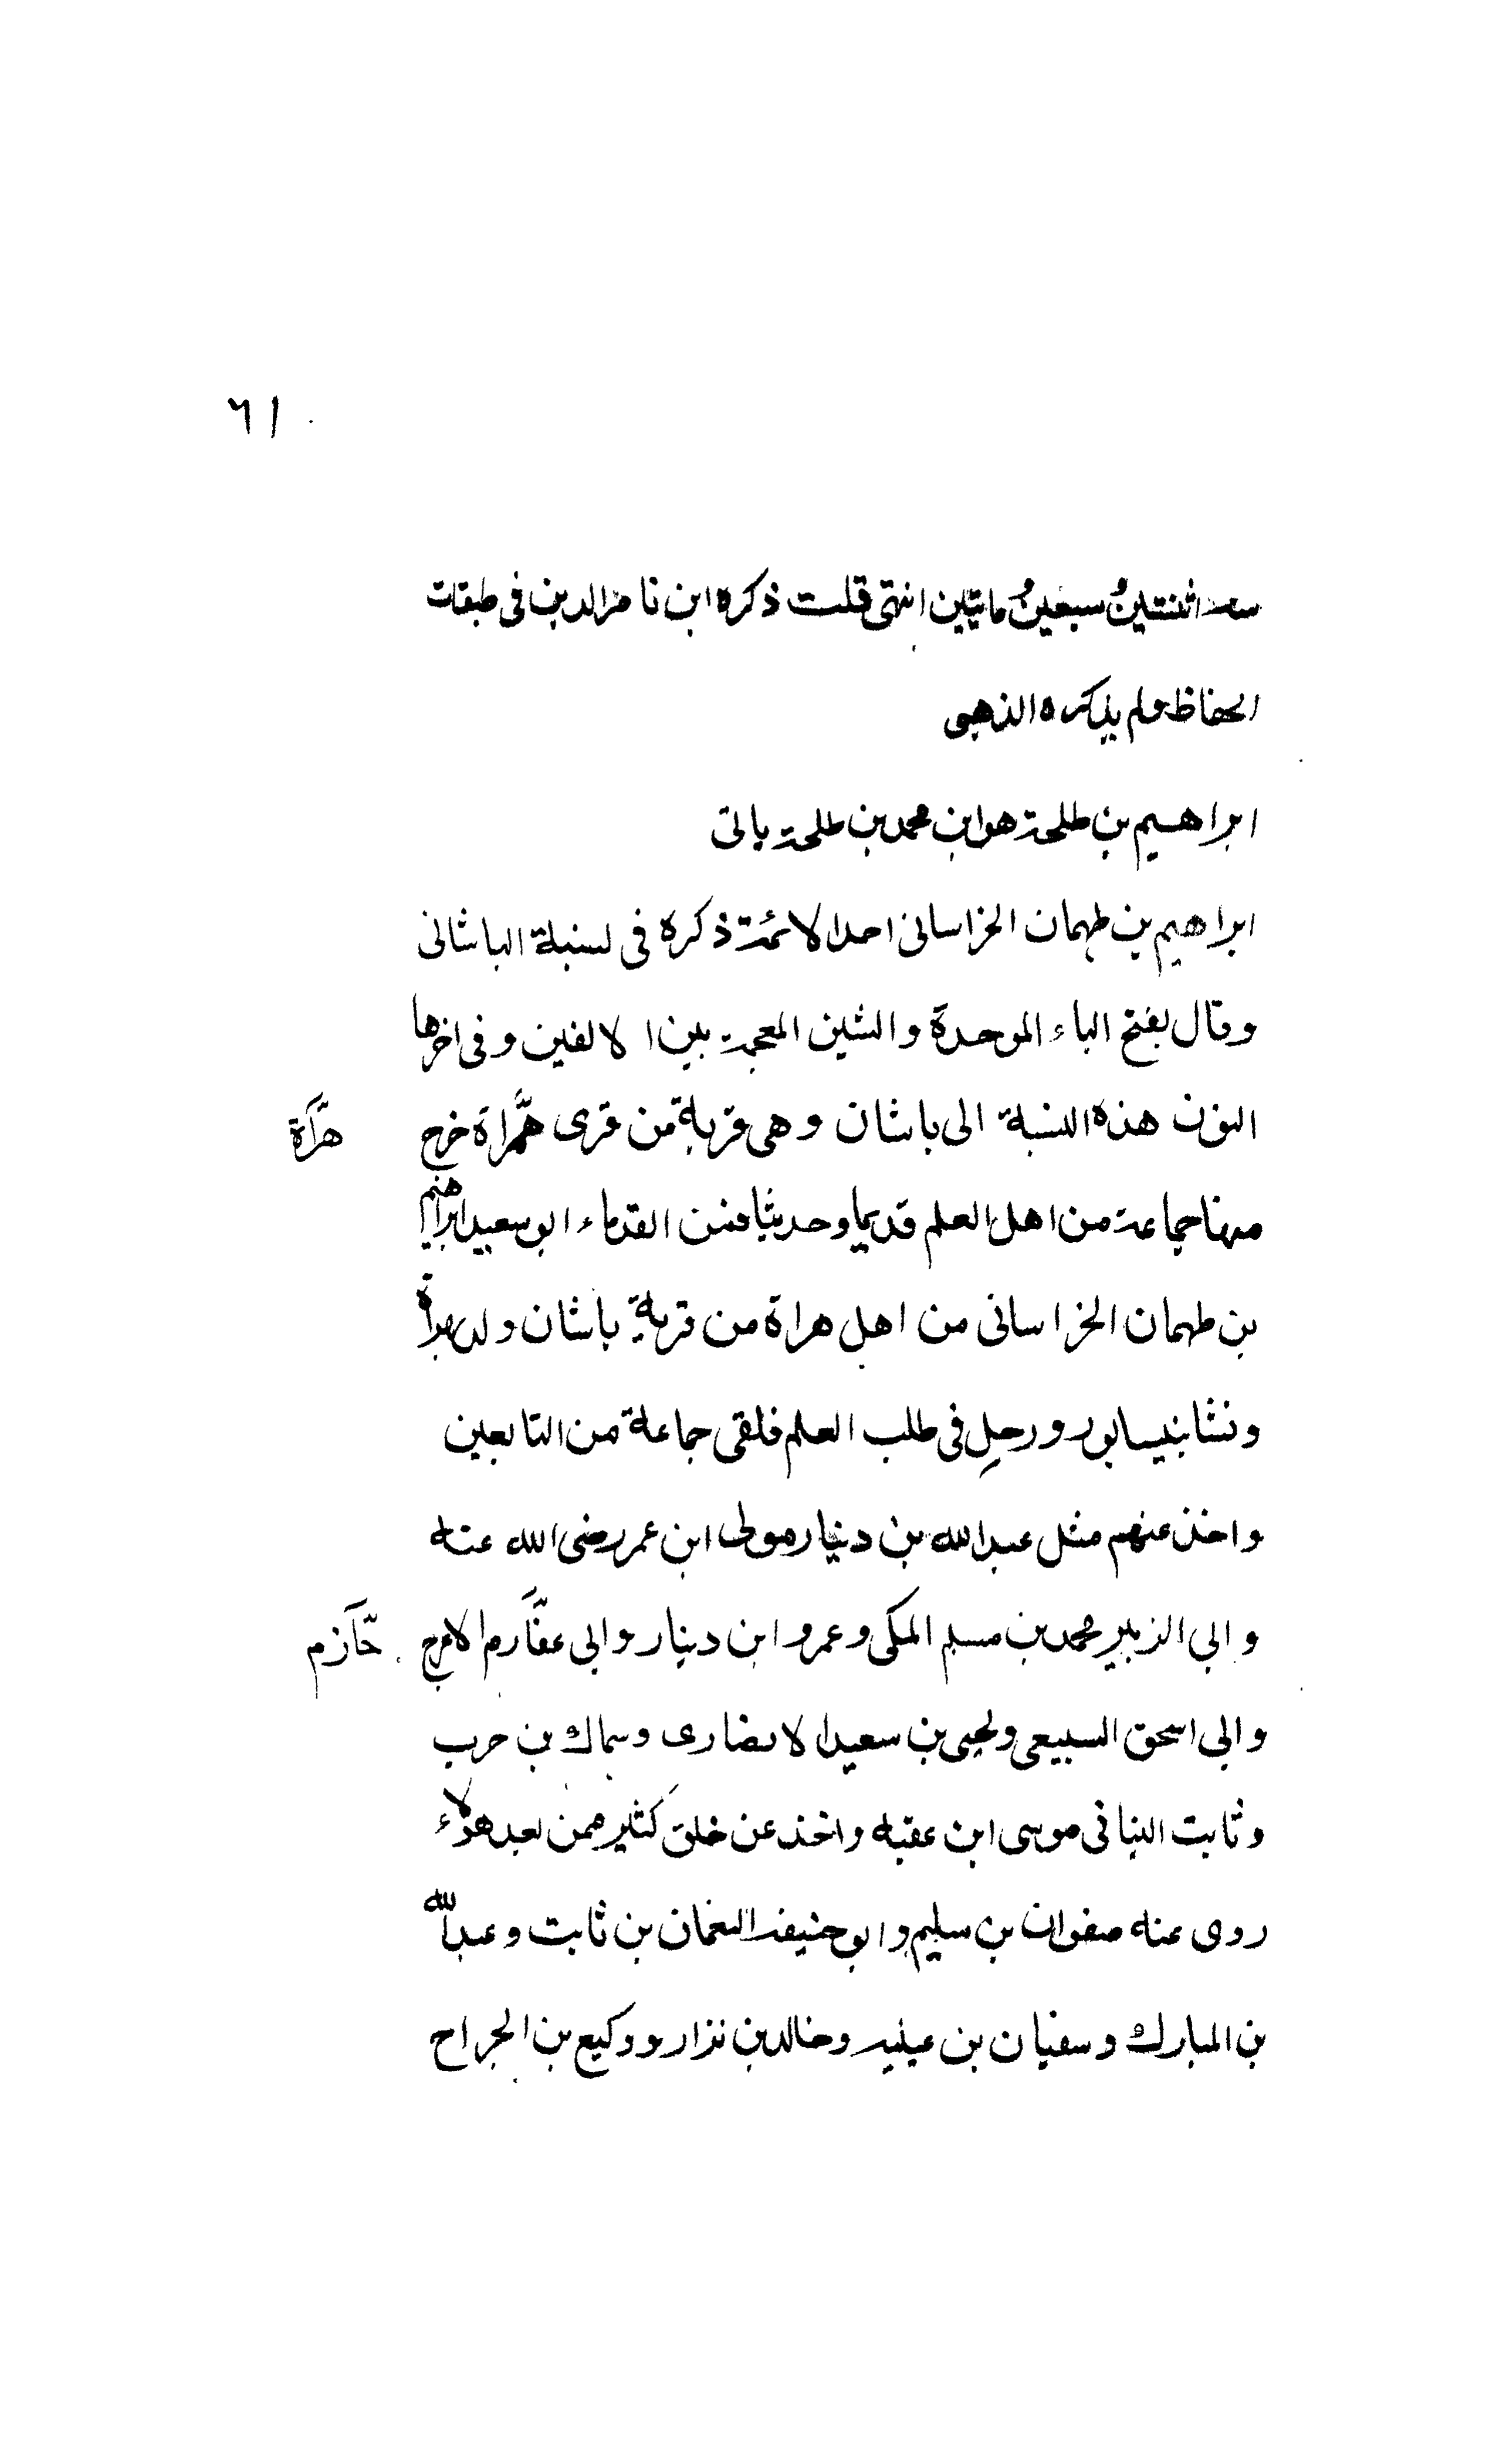 ٦١
سنة اثنتين وسبعين ومايتين انتهى قلت ذكره ابن ناصر الدين فى طبقات
الحفاظ ولم يذكره الذهبى
ابراهيم بن طلحة هو ابن محمد بن طلحة ياتى
ابراهيم بن طهمان الخراسانى احد الائمة ذكره فى نسبة الباشانى
وقال بفتح الباء الموحدة والشين المعجمة بين الالفين وفى اخرها
النون هذه النسبة الى باشان وهى قرية من قرى همراة خرج
هراة
منها جماعة من اهل العلم قديما وحديثا فمن القدماء ابو سعيد ابراهيم
بن طهمان الخراسانى من اهل هراة من قرية باشان ولد بهراة
ونشا بنيسابور ورحل فى طلب العلم فلقى جماعة من التابعين
واخذ عنهم مثل عبد الله بن دينار مولى ابن عمر رضى الله عنه
وابي الزبير محمد بن مسلم المكى وعمرو ابن دينار وابى عفارم الاعرج
حازم
وابي اسحق السبيعى ويحيى بن سعيد الانصارى وسماك بن حرب
وثابت البنانى موسى ابن عقبه واخذ عن خلق كثير ممن بعد هؤلاء
روى عنه صفوان بن سليم وابو حنيفة النعمان بن ثابت وعبد الله
بن المبارك وسفيان بن عيينه وخالد بن نزار ووكيع بن الجراح